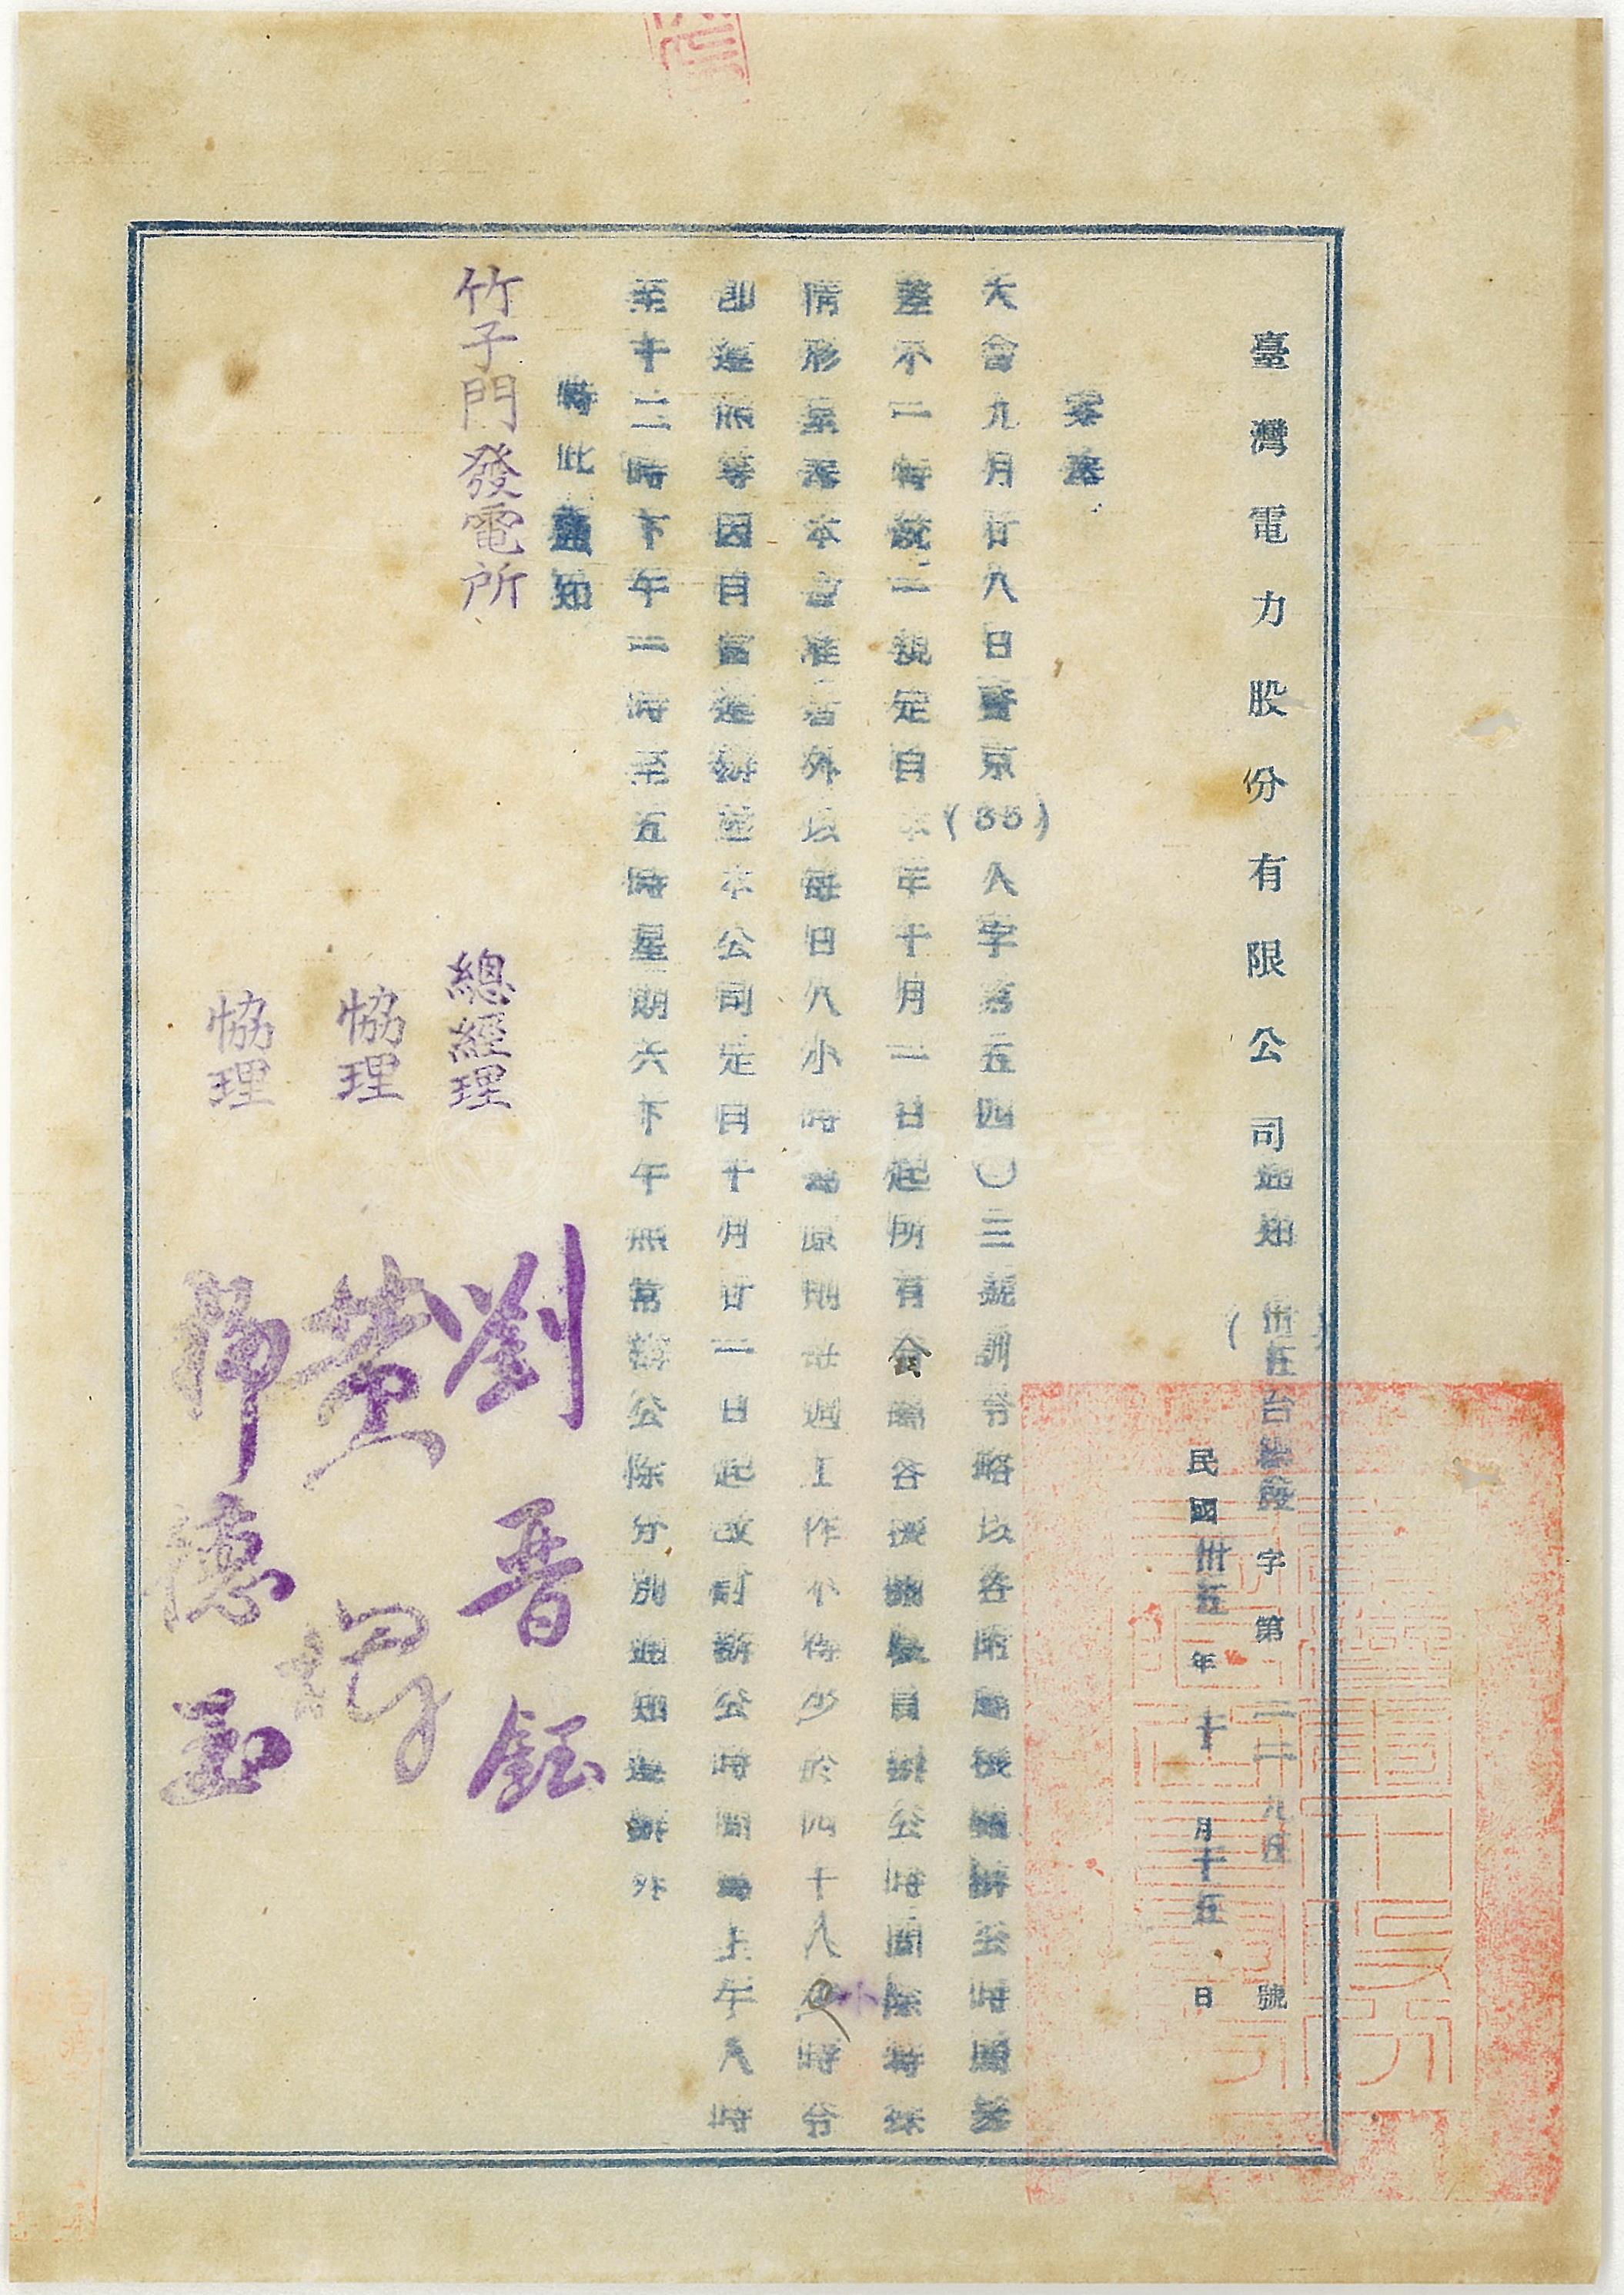 臺灣電力股份有限公司通知 卅五台總發字第二二九五號
民國卅五年十月十五日
案奉
大會九月廿八日資京(35)人字第五四〇三號訓令略以各附屬機關辦公時間參
差不一特統一規定自本年十月一日起所有會屬各機關職員辦公時間除特殊
情形呈奉本會准者外以每日八小時為原則每週工作不得少於四十八小時令
即遵照等因自當遵辦茲本公司定自十月廿一日起改訂辦公時間為上午八時
至十二時下午一時至五時星期六下午照常辦公除分別通知遵辦外
特此通知
竹子門發電所
總經理 劉晋鈺
協理 黃煇
協理 柳德玉